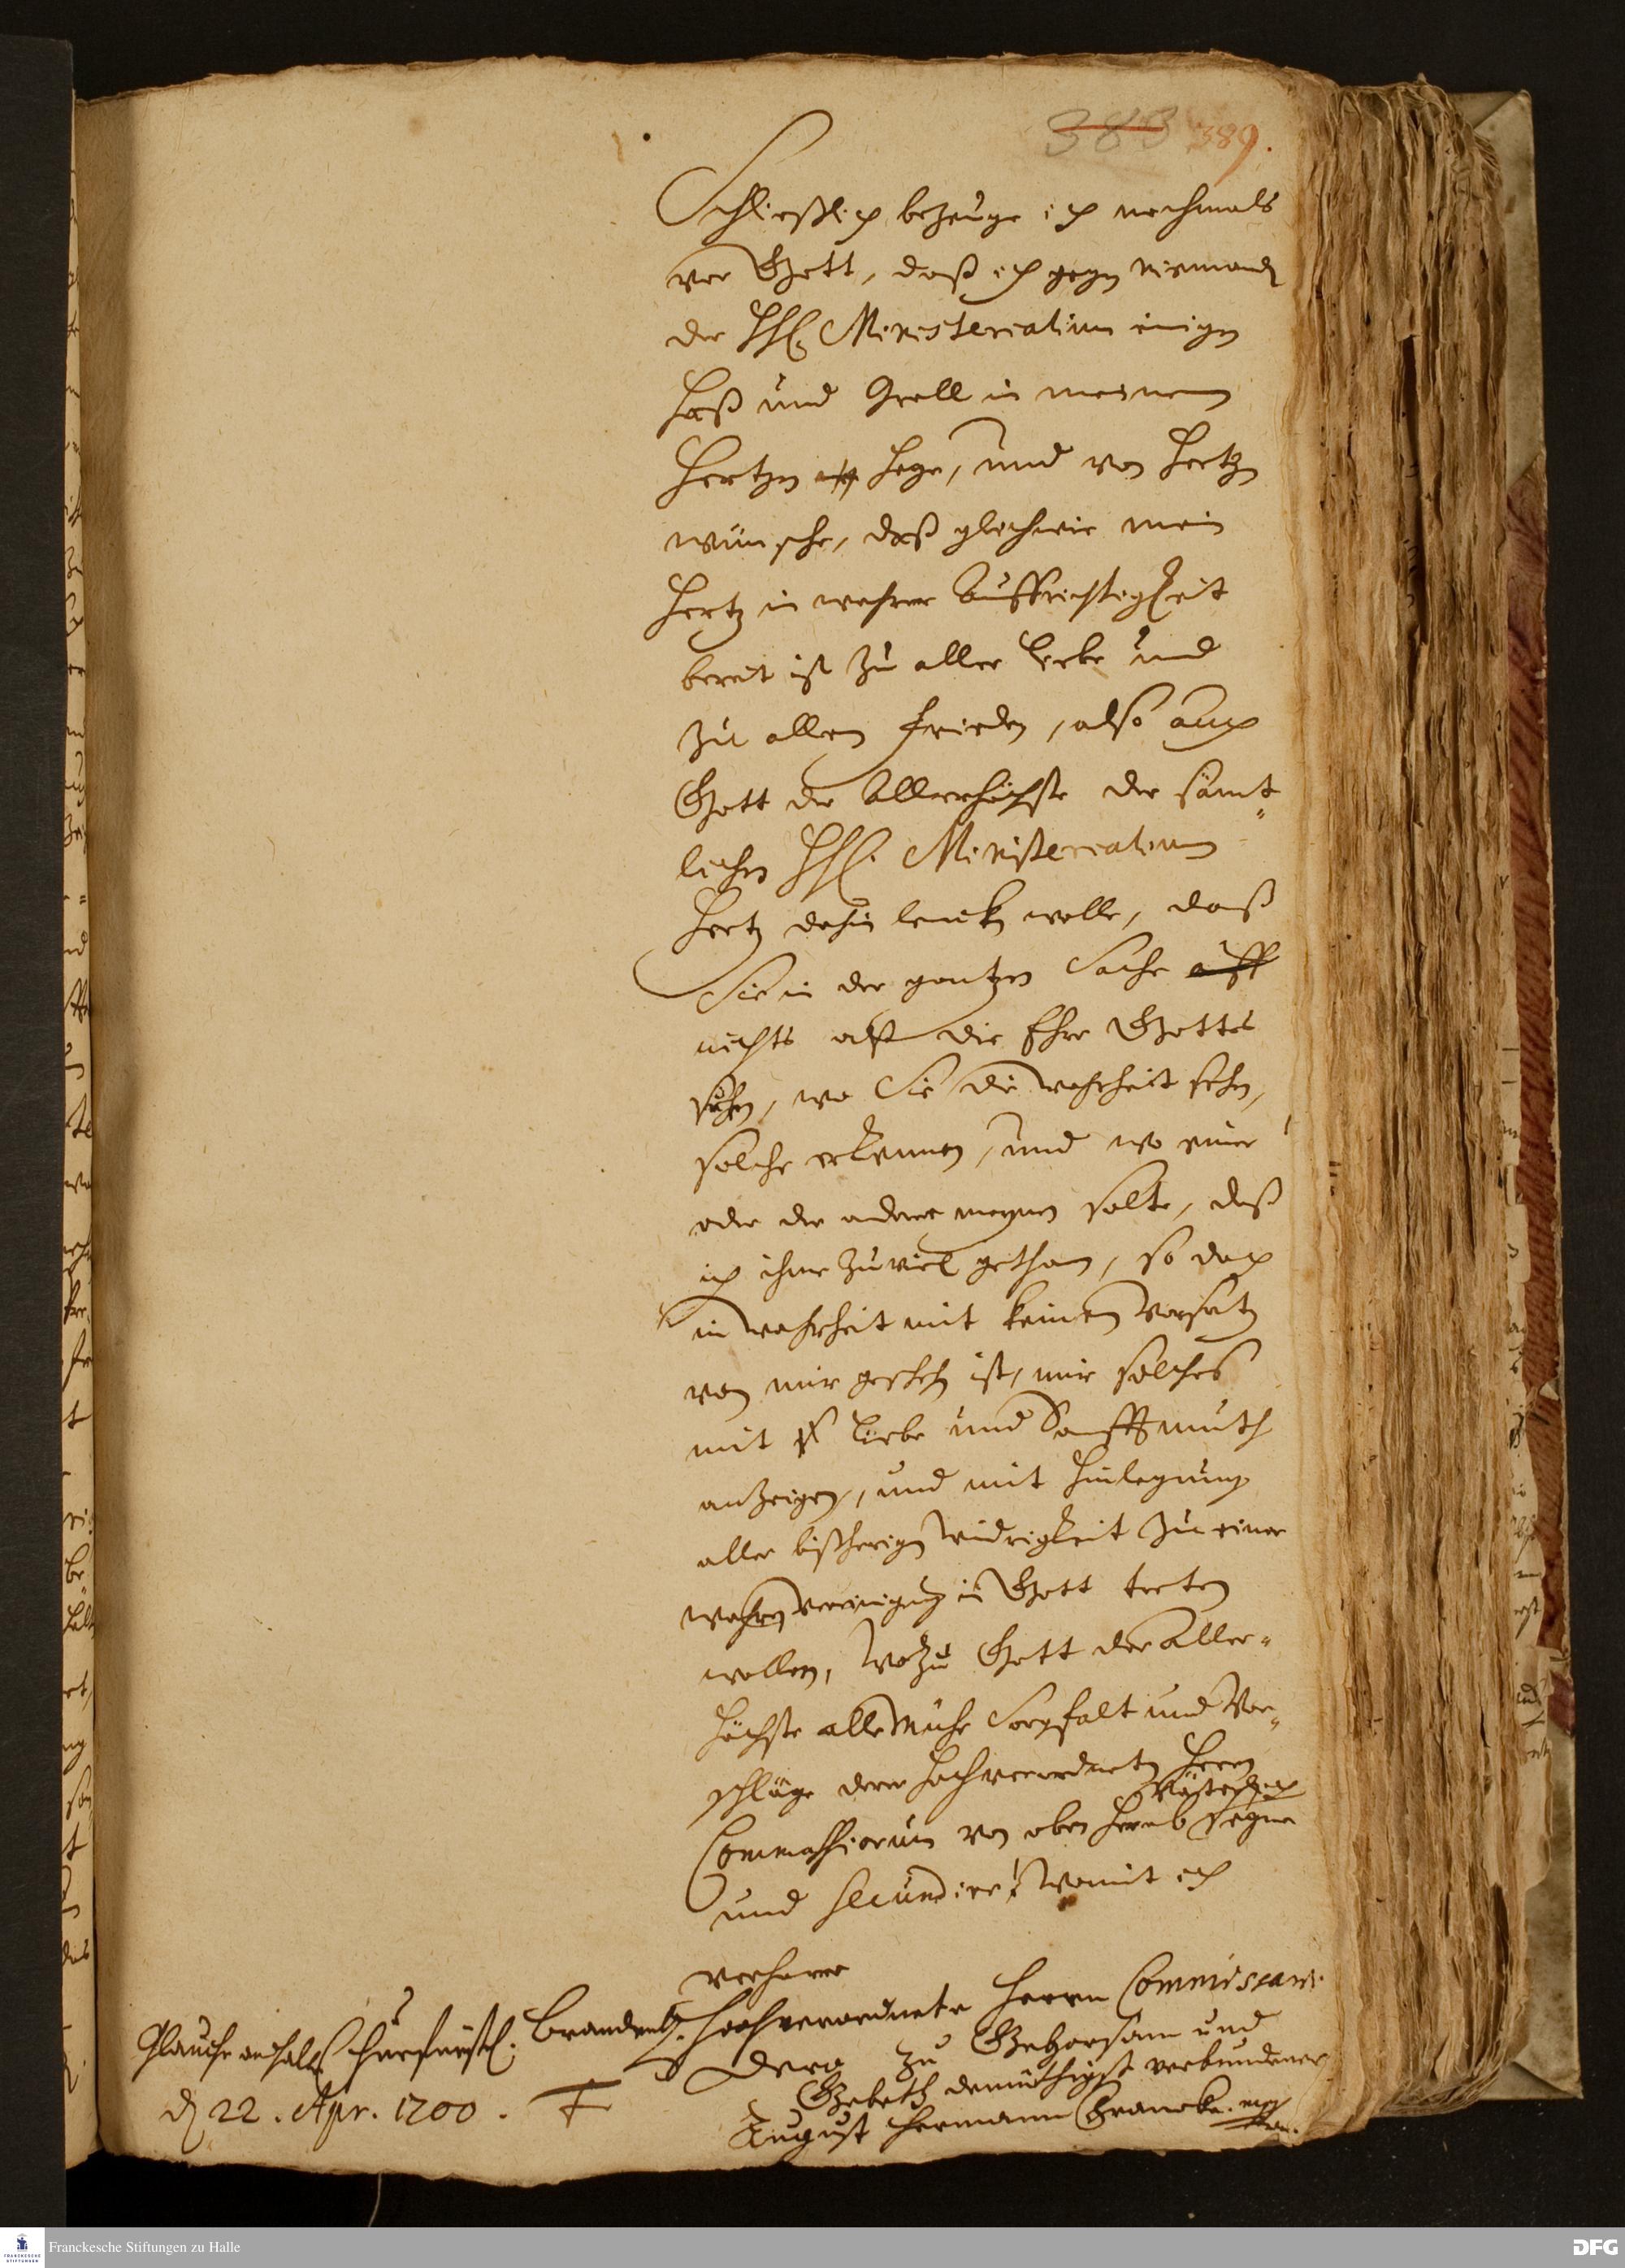 383 389.
Schließlich bezeuge ich nochmals
vor Gott, daß ich gegen niemand
der HH. Ministerialium einigen
Haß und Groll in meinem
Hertzen hege, und von Hertzen
wünsche, daß gleichwie mein
Hertz in wahrer Auffrichtigkeit
bereit ist zu aller Liebe und
zu allem Frieden, also auch
Gott der Allerhöchste der sämt-
lichen HH. Ministerialium
Hertz dahin lencken wolle, daß
Sie in der gantzen Sache auff
nichts alß die Ehre Gottes
sehen, wo Sie die Wahrheit sehen,
solche erkennen, und wo einer
oder der andere meynen solte, daß
ich ihme zuviel gethan, so doch
in Wahrheit mit keinem Vorsatz
von mir geschehen ist, mir solches
mit Liebe und Sanfftmuth
anzeigen, und mit Hinlegung
aller bißherigen Widrigkeit zu einer
wahren Vereinigung in Gott treten
wollen, Wozu Gott der Aller-
höchste alle Mühe Sorgfalt und Vor-
schläge derer Hochverordneten Herren
Väterlich
Commissariorum von oben herab segne
und secundire! Womit ich
verharre
Churfürstl. Brandenb. Hochverordnete Herrn Commissarii
Glauche an Halle
Dero zu Gehorsam und
d 22. Apr. 1700.
Gebeth demüthigst verbundener
August Hermann Francke. mpp